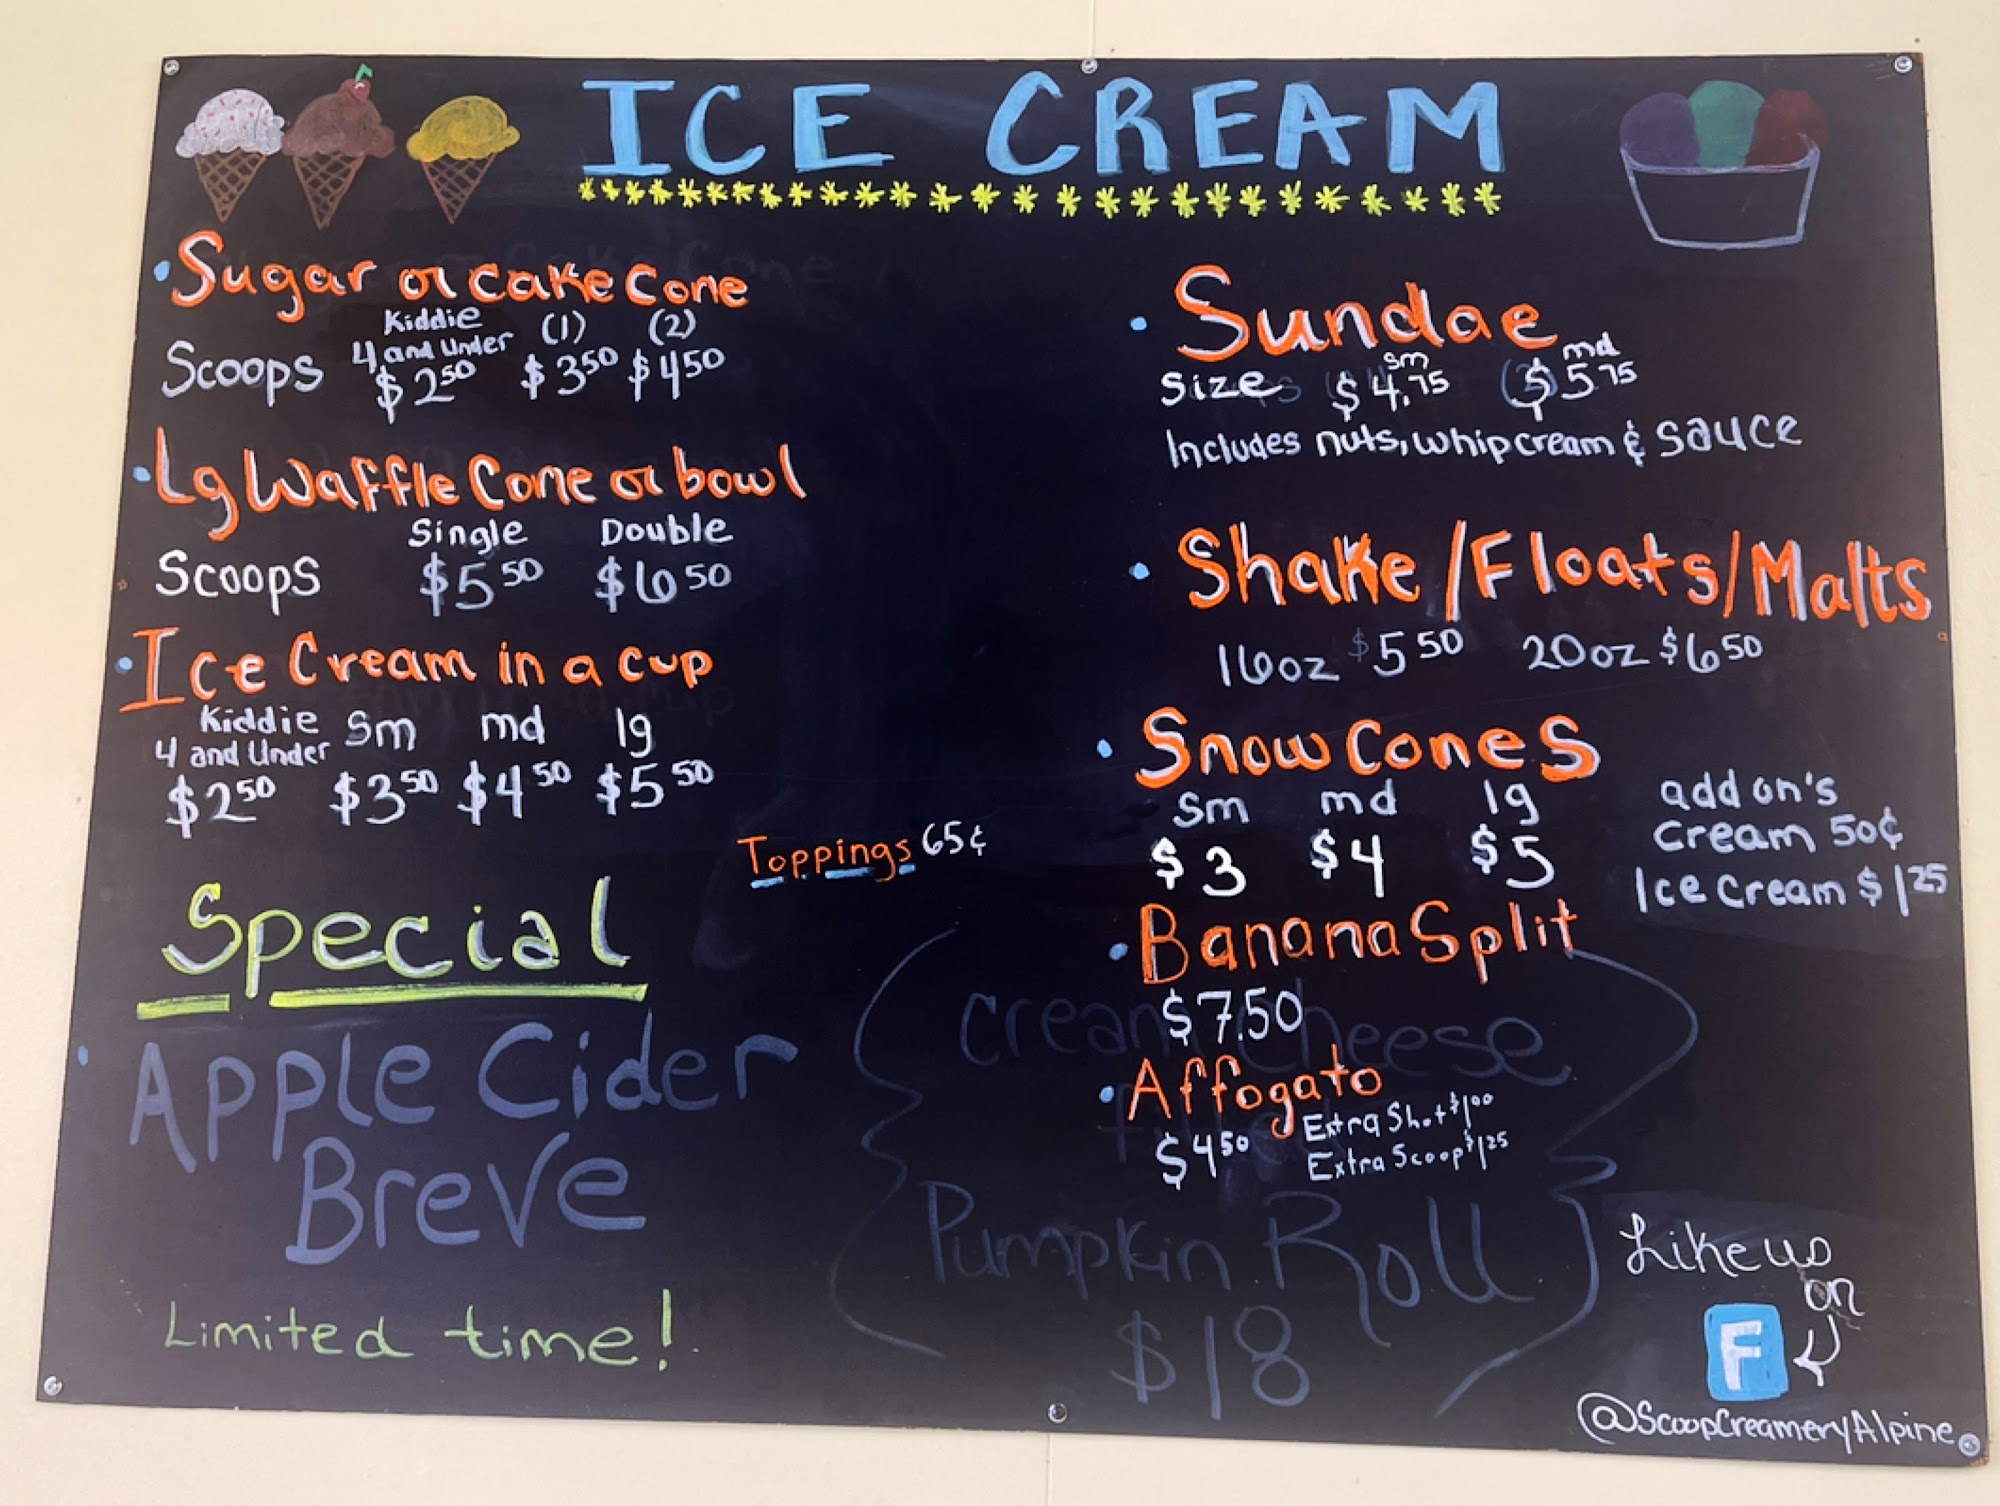 ICE CREAM
Sugar or Cake Cone
Kiddie (1) (2)
4 and Under
Scoops $2 50 $3 50 $4 50
Lg Waffle Cone or bowl
Single Double
Scoops $5 50 $6 50
Ice Cream in a cup
Kiddie sm md lg
4 and Under
$2 50 $3 50 $4 50 $5 50
Toppings 65¢
Special
Apple Cider
Breve
Limited time!
Sundae
sm md
Size $4.75 $5 75
Includes nuts, whip cream & sauce
Shake/Floats/Malts
16oz $5 50 20oz $6 50
Snow Cones
sm md lg
$3 $4 $5
add on's
cream 50¢
Ice cream $1 25
Banana Split
$7.50
Affogato
$4 50 Extra Shot $1 00
Extra Scoop $1 25
cream cheese
filled
Pumpkin Roll
$18
Like us
on
F
@ScoopCreameryAlpine